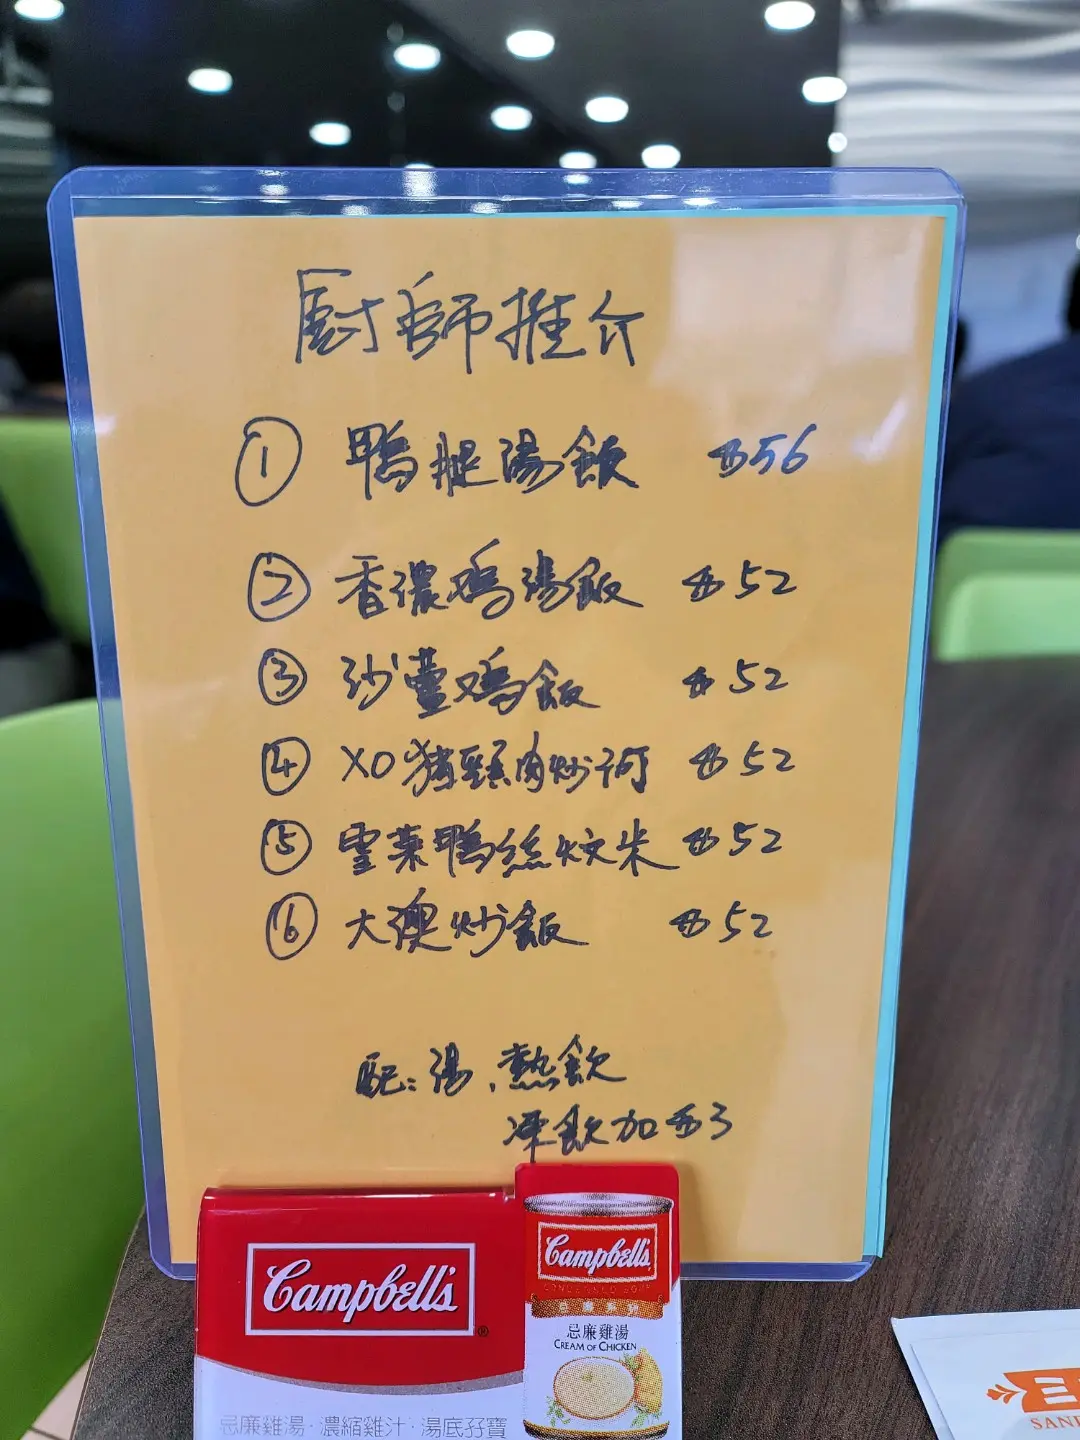 廚師推介
① 鴨腿湯飯 $56
② 香濃鸡湯飯 $52
③ 沙薑鸡飯 $52
④ XO猪頸肉炒河 $52
⑤ 雪菜鴨絲炆米 $52
⑥ 大澳炒飯 $52
配:湯、熱飲
凍飲加$3
Campbell's®
忌廉雞湯·濃縮雞汁·湯底孖寶
Campbell's
CONDENSED SOUP
忌廉雞湯
CREAM OF CHICKEN